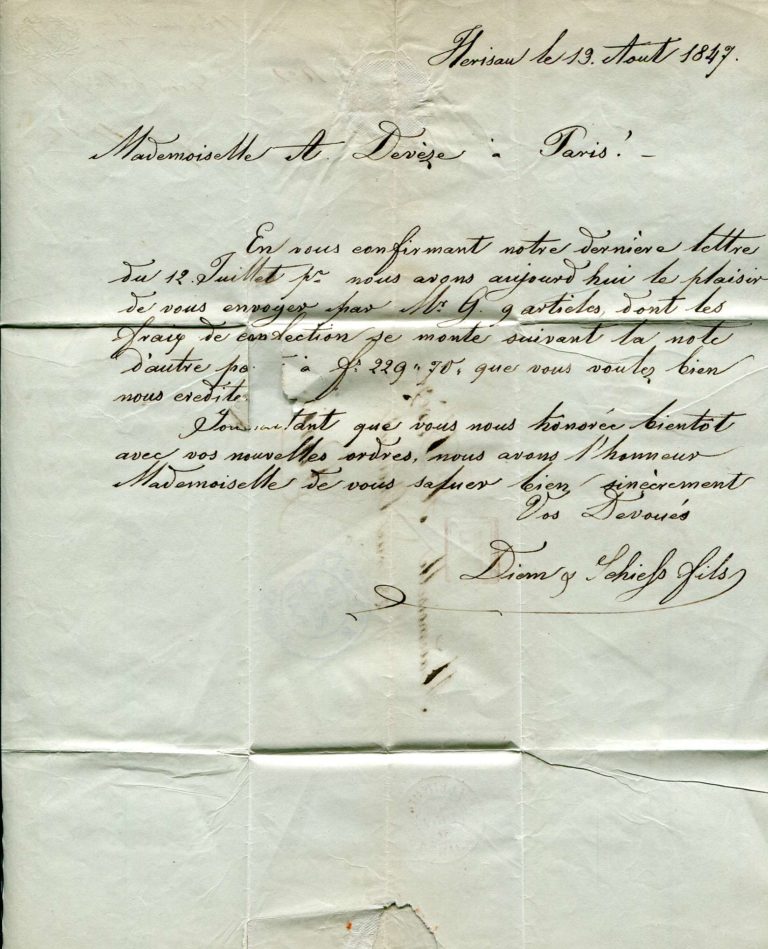 Herisau le 19. Aout 1847.
Mademoiselle A. Devèze à Paris! –
En vous confirmant notre dernière lettre
du 12. Juillet pr. nous avons aujourd'hui le plaisir
de vous envoyer par Mr. G. 9 articles, dont les
fraix de confection se monte suivant la note
d'autre pa à f. 229 " 70, que vous voulez bien
nous crediter
que vous nous hônorée bientôt
avec vos nouvelles ordres, nous avons l'honneur
Mademoiselle de vous saluer bien sincèrement
Vos Dévoués
Diem & Schiess fils